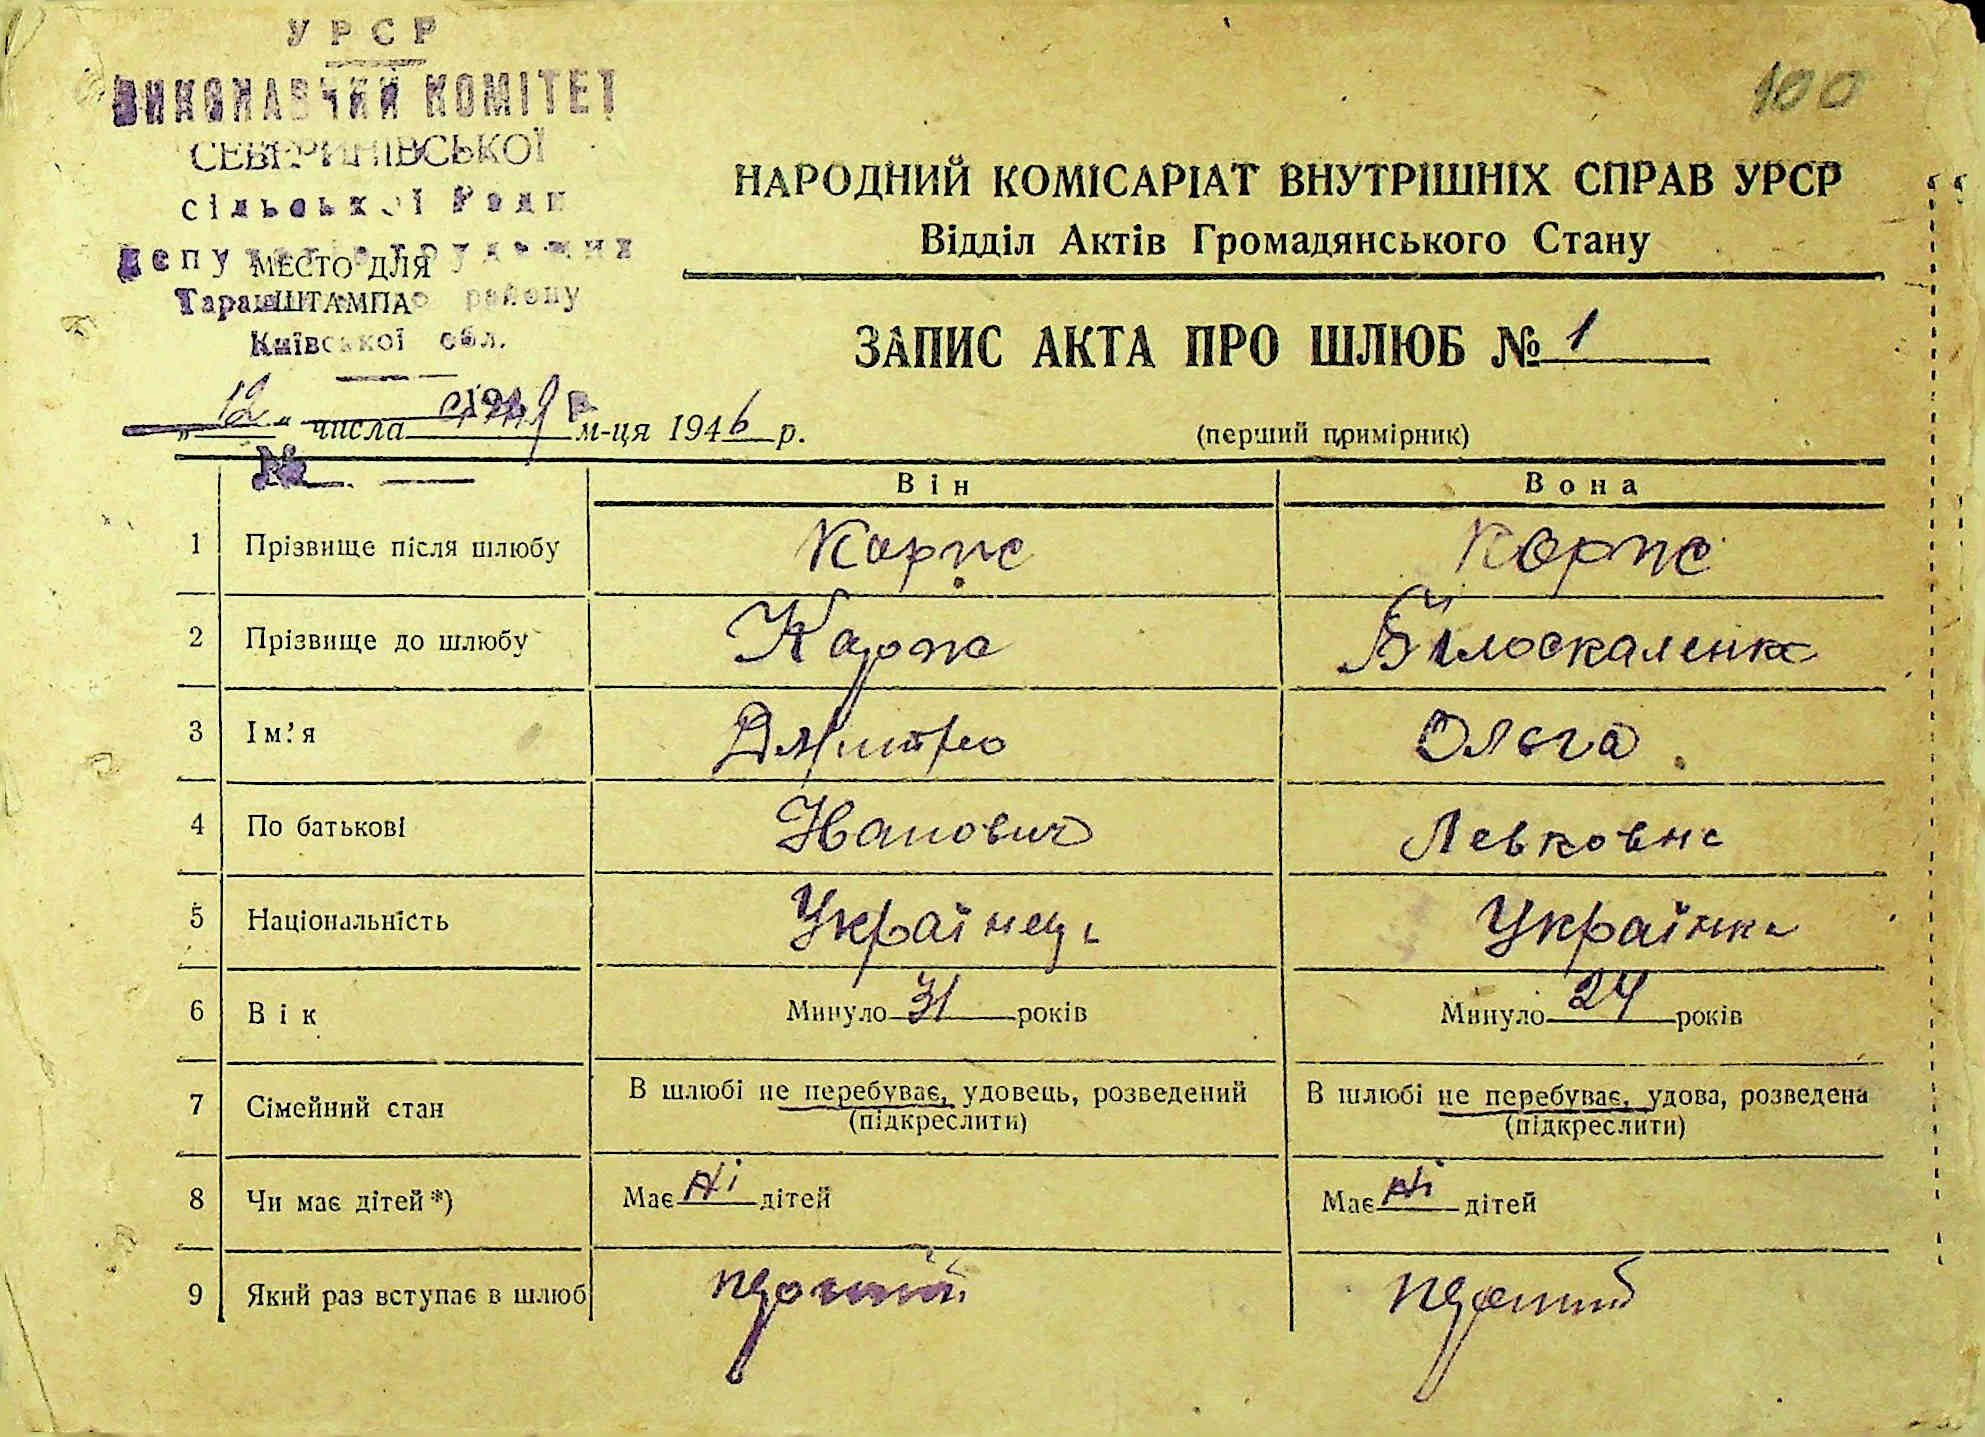 100
УРСР
ВИКОНАВЧИЙ КОМІТЕТ
СЕВЕРИНІВСЬКОЇ
сільської Ради
депутатів трудящих
МЕСТО ДЛЯ
ШТАМПА
району
Київської обл.
НАРОДНИЙ КОМІСАРІАТ ВНУТРІШНІХ СПРАВ УРСР
Відділ Актів Громадянського Стану
ЗАПИС АКТА ПРО ШЛЮБ № 1
„12“ числа м-ця 1946 р.
(перший примірник)
№
Він Вона
1 Прізвище після шлюбу
2 Прізвище до шлюбу
3 Ім'я Дмитро Ольга
4 По батькові Іванович Левковна
5 Національність Українець Українка
6 Вік Минуло 31 років Минуло 24 років
7 Сімейний стан В шлюбі не перебуває, удовець, розведений В шлюбі не перебуває, удова, розведена
(підкреслити) (підкреслити)
8 Чи має дітей*) Має Ні дітей Має Ні дітей
9 Який раз вступає в шлюб